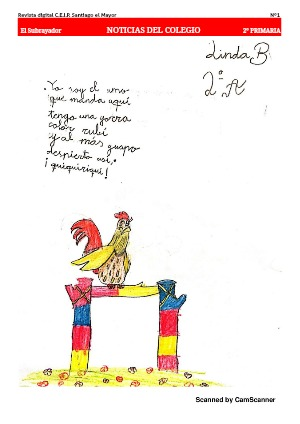 Revista digital C.E.I.P. Santiago el Mayor Nº1
El Subrayador NOTICIAS DEL COLEGIO 2º PRIMARIA
Linda B.
2º A
Yo soy el amo
que manda aquí
tengo una gorra
color rubí
y al más guapo
despierto así,
¡quiquiriquí!
Scanned by CamScanner